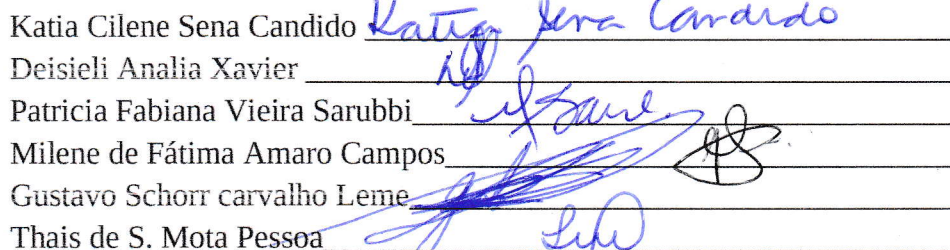 Katia Cilene Sena Candido Katia Sena Candido
Deisieli Analia Xavier
Patricia Fabiana Vieira Sarubbi
Milene de Fátima Amaro Campos
Gustavo Schorr carvalho Leme
Thais de S. Mota Pessoa